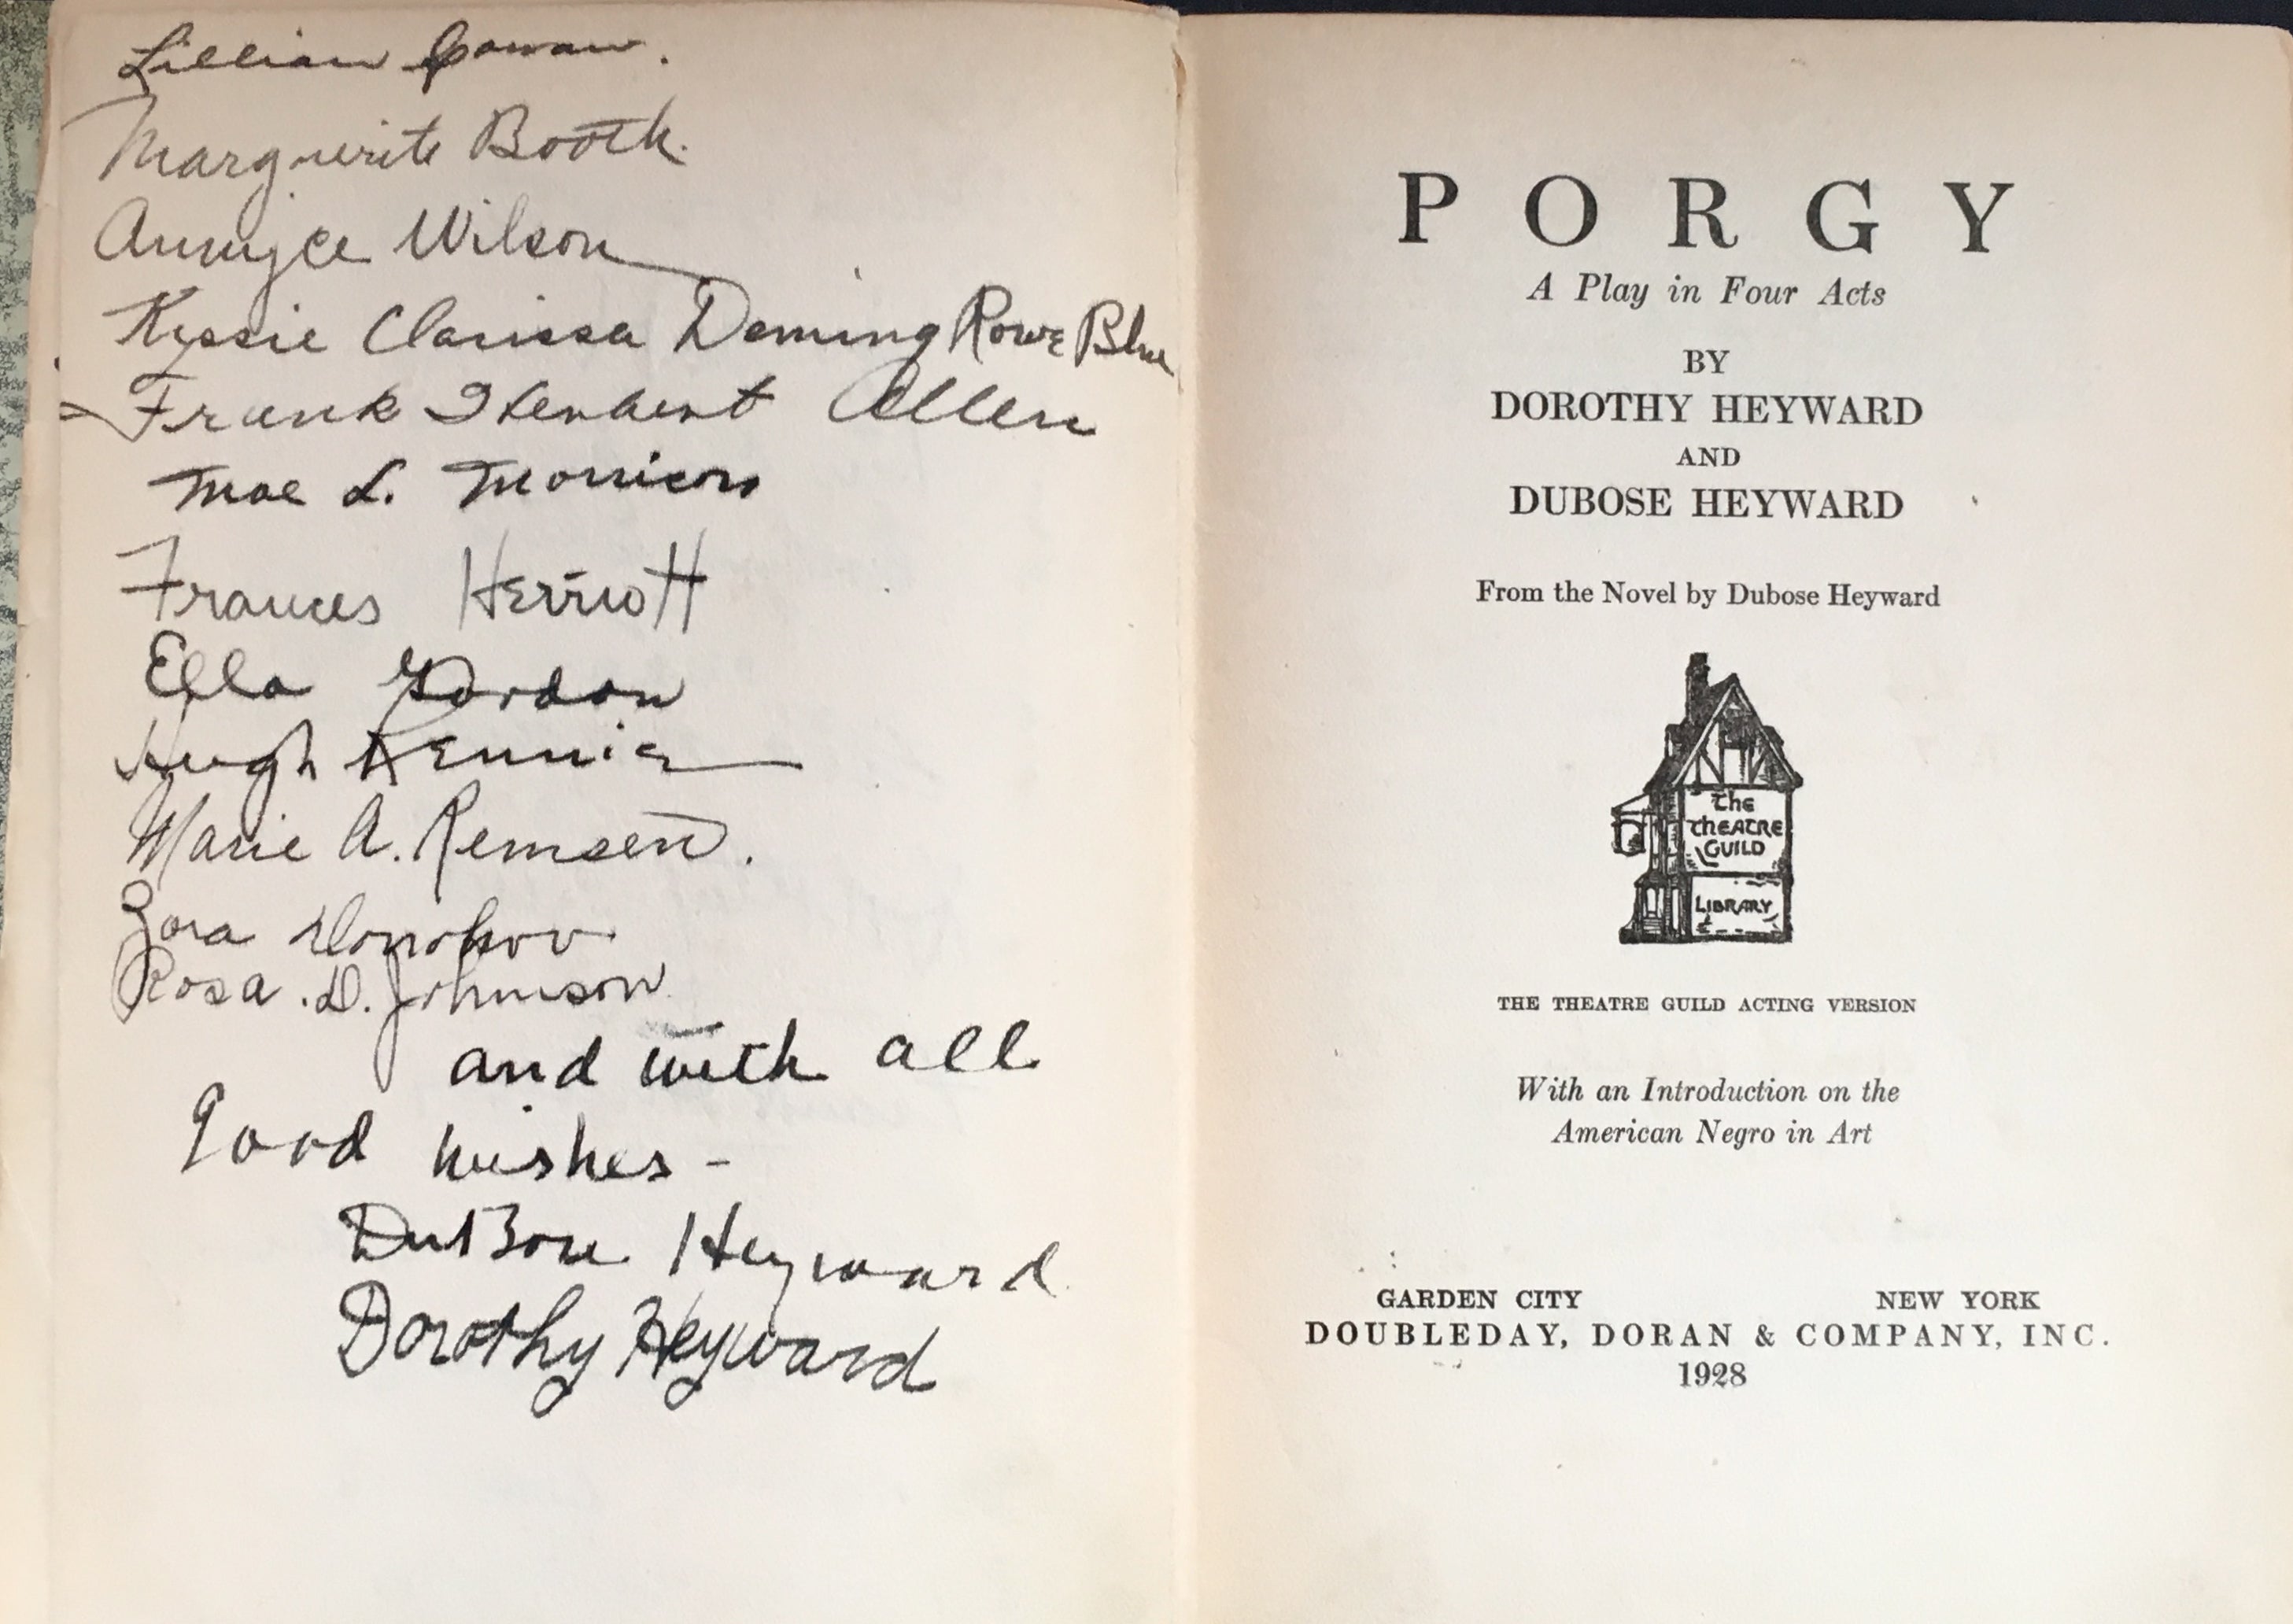 Lillian Cowan.
Marguerite Booth.
Wilson
Kessie Clarissa Deming Rowe Blue
Frank Herbert Allen
Mae L.
Frances Herriott
Ella Gordon
Hugh Rennie
Marie A. Remsen.
Zora
Rosa. D. Johnson
and with all
good wishes -
DuBose Heyward
Dorothy Heyward
PORGY
A Play in Four Acts
BY
DOROTHY HEYWARD
AND
DUBOSE HEYWARD
From the Novel by Dubose Heyward
The
Theatre
Guild
Library
THE THEATRE GUILD ACTING VERSION
With an Introduction on the
American Negro in Art
GARDEN CITY NEW YORK
DOUBLEDAY, DORAN & COMPANY, INC.
1928